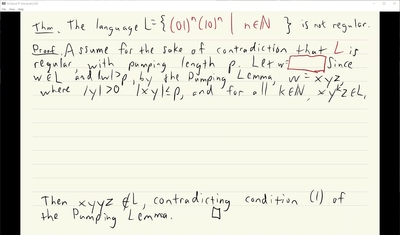 Thm. The language L = { (01)ⁿ(10)ⁿ | n∈ℕ } is not regular.
Proof. Assume for the sake of contradiction that L is
regular, with pumping length p. Let w= Since
w∈L and |w|>p, by the Pumping Lemma, w = xyz,
where |y|>0 |xy|≤p, and for all k∈ℕ, xyᵏz∈L.
Then xyyz ∉L, contradicting condition (1) of
the Pumping Lemma. □